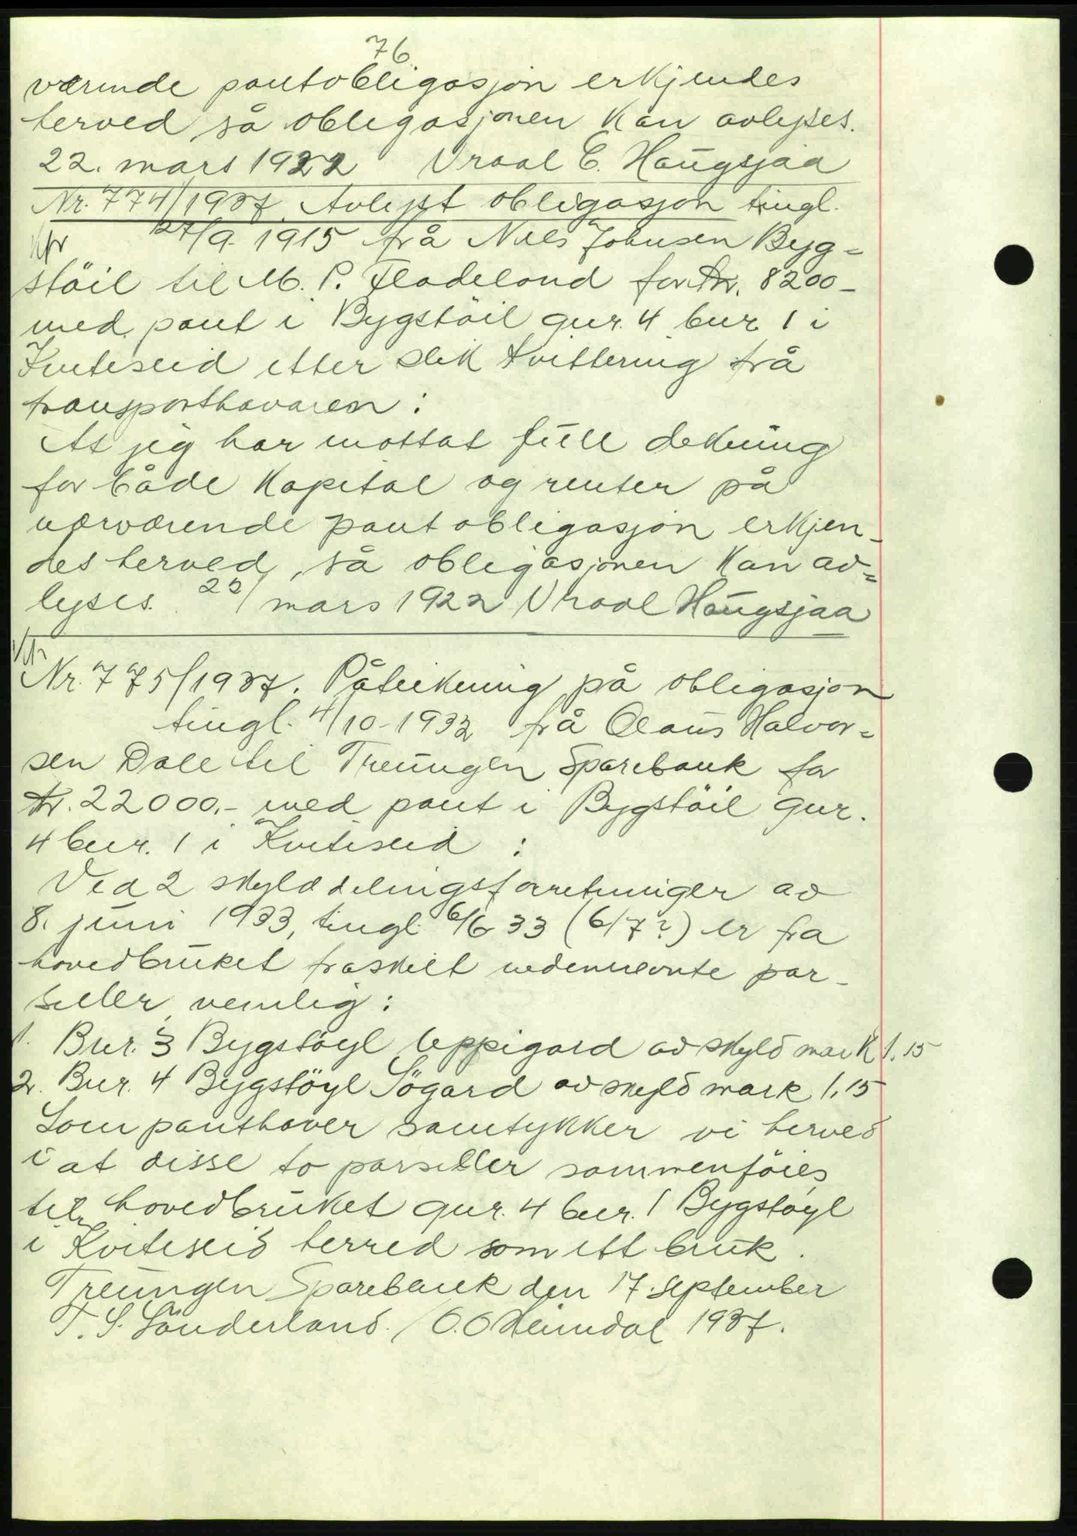 76
værende pantobligasjon erkjendes
herved så obligasjonen kan avlyses.
22. mars 1922 Vraal C. Haugsjaa
Nr. 774/1937. Avlyst obligasjon tingl.
27/9. 1915 frå Nils Johnsen Byg=
støil til M. P. Fladeland for kr. 8200-
med pant i Bygstøil gnr. 4 bnr. 1 i
Kviteseid etter slik kvittering frå
transporthavaren:
At jeg har mottat full dekning
for både kapital og renter på
nærværende pantobligasjon erkjen-
des herved, så obligasjonen kan av=
lyses. 22/ mars 1922 Vraal Haugsjaa
Nr. 775/1937. Påteikning på obligasjon
tingl. 4/10-1932 frå Olaus Halvor=
sen Dale til Treungen Sparebank for
kr. 22000.- med pant i Bygstøil gnr.
4 bnr. 1 i Kviteseid :
Ved 2 skylddelingsforretninger av
8. juni 1933, tingl. 6/6 33 (6/7?) er fra
hovedbruket fraskilt nedennevnte par-
seller, nemlig:
1. Bnr. 3 Bygstøyl Uppigard av skyld mark 1.15
2. Bnr. 4 Bygstøyl Søgard av skyld mark 1,15
Som panthaver samtykker vi herved
i at disse to parseller sammenføies
til hovedbruket gnr. 4 bnr. 1 Bygstøyl
i Kviteseid herred som ett bruk.
Treungen Sparebank den 17. september
T. S. Sønderland. / O. O Heimdal 1937.